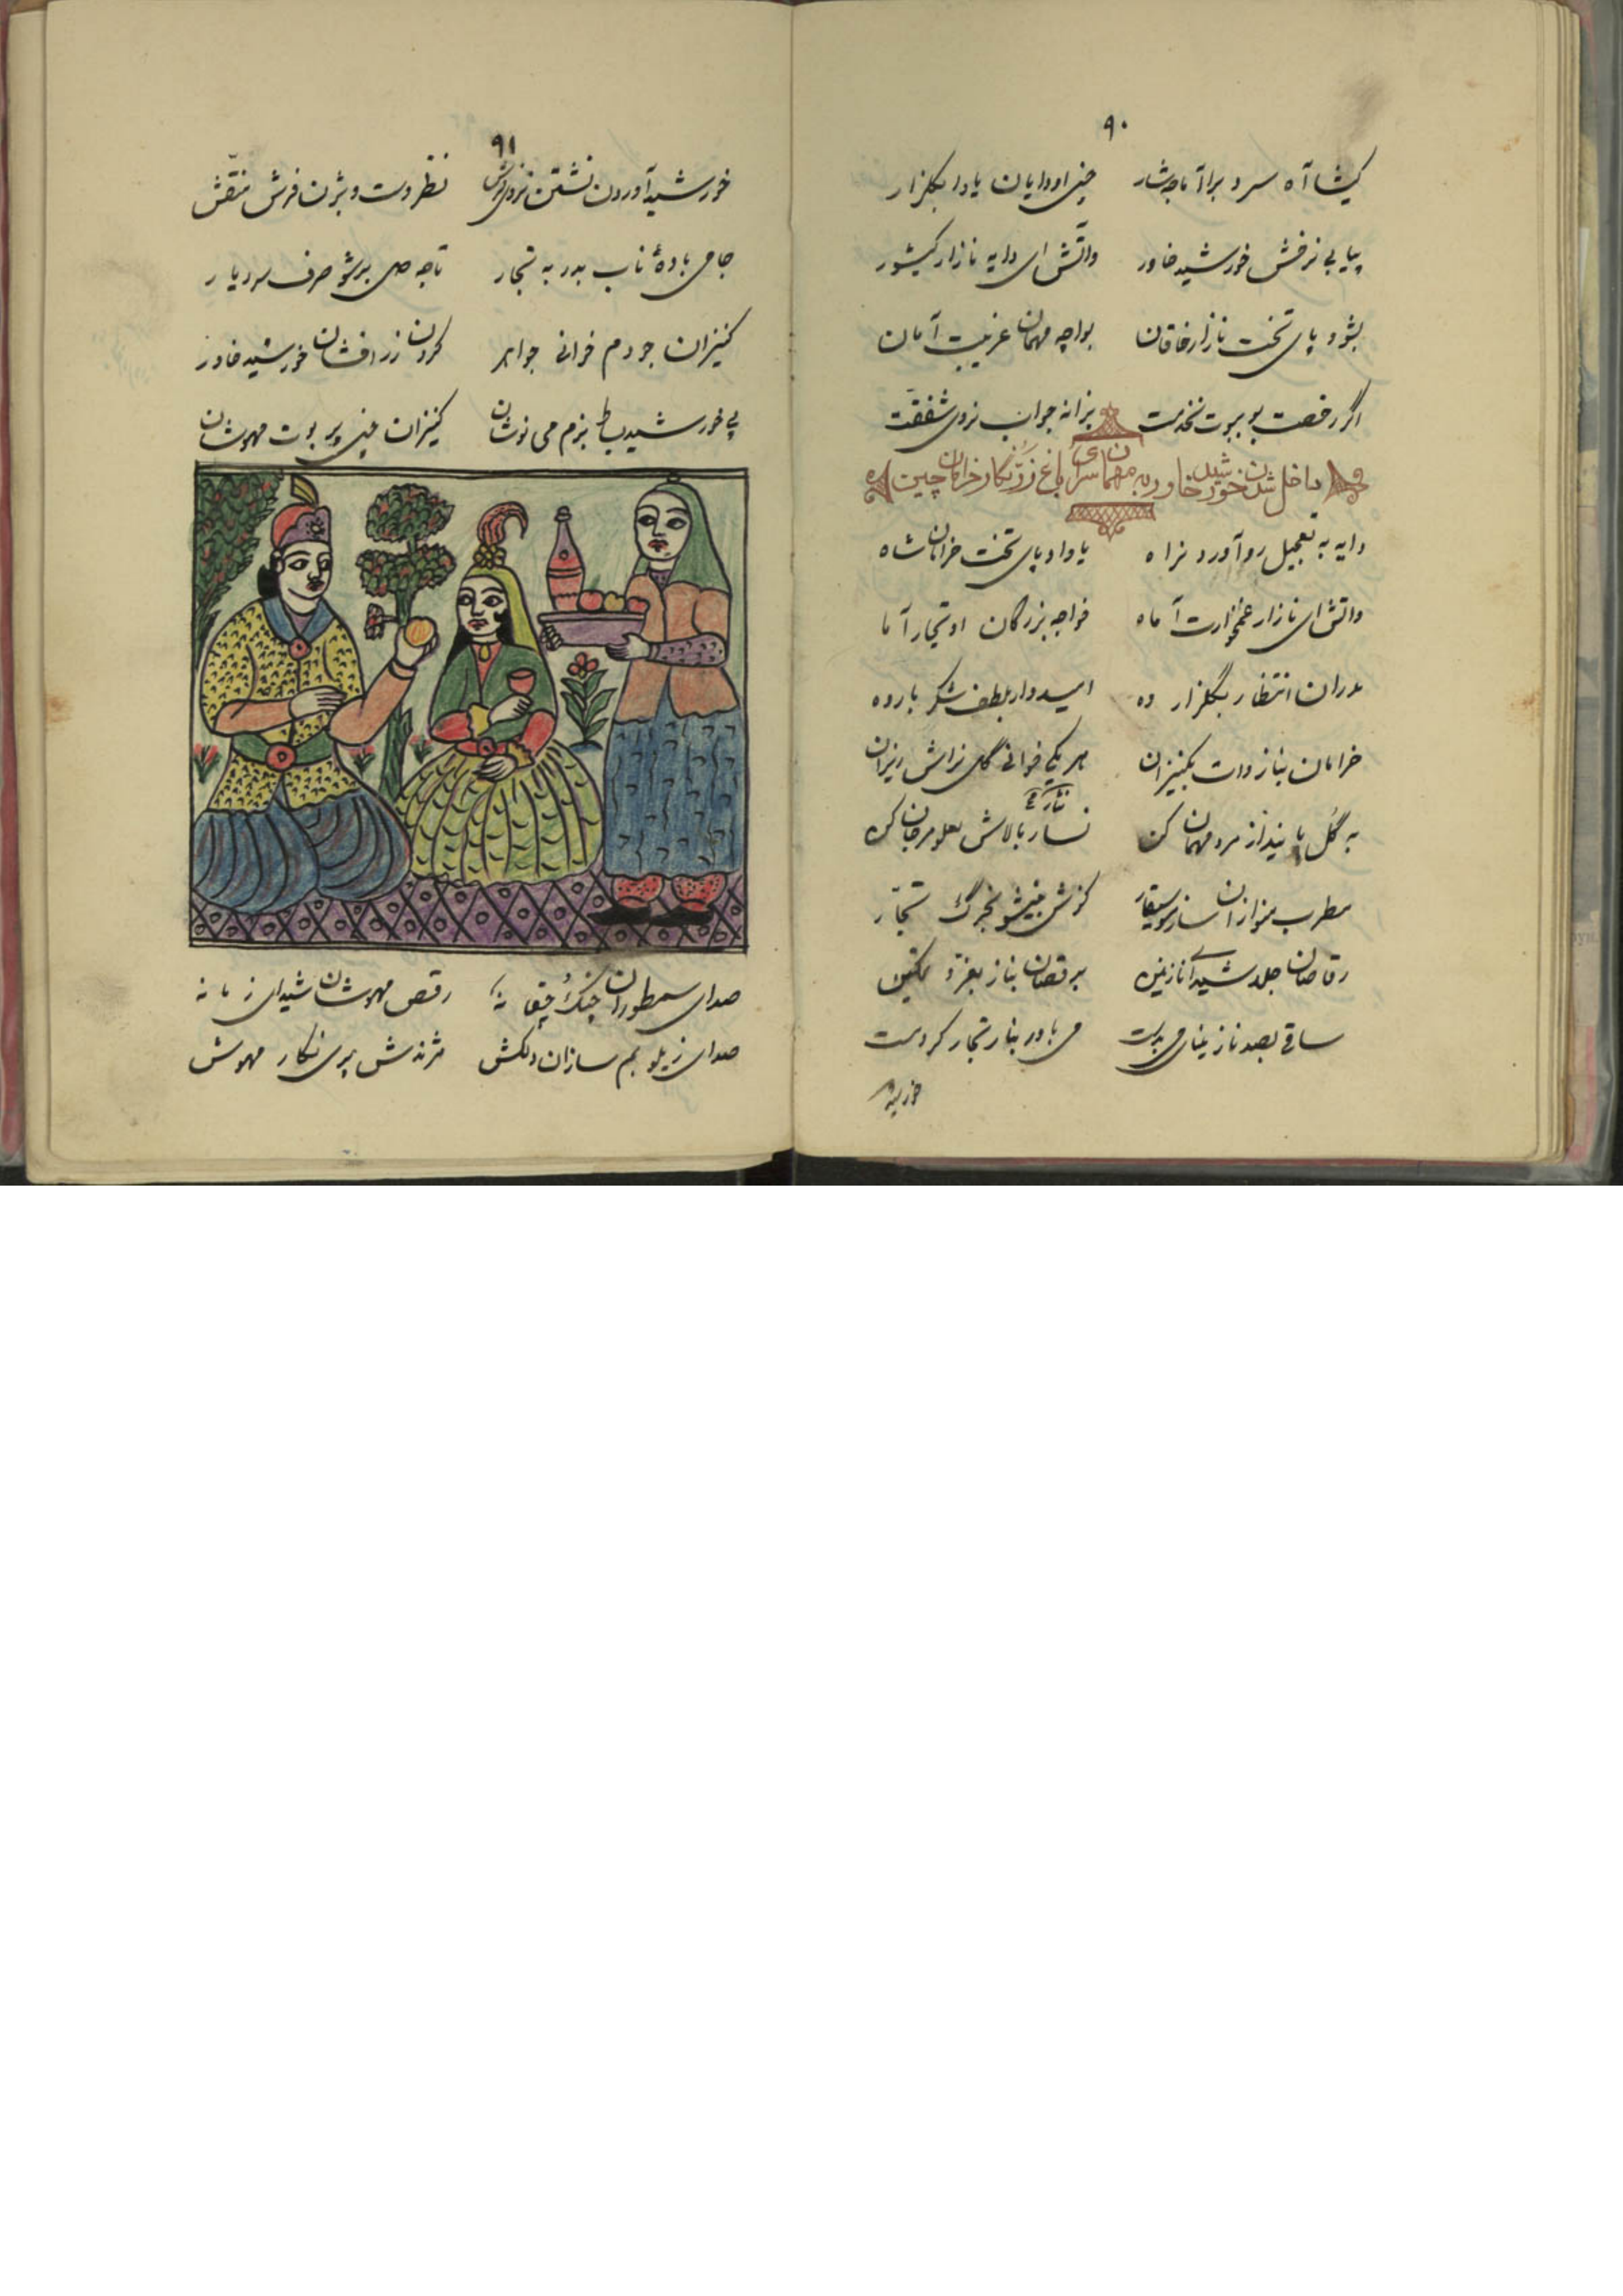 ۹۰
کیشا آه سرد برآما جه شار خیلی او دایان یاوا بگلزار
پیاپی نرفش خورشید خاور واتش ای دایه نازار کیشور
بشو و پای تخت نازار خاقان بواچه مهمان غریب آمان
اگر رخصت بو بیوت نخدمت بزانه جواب نروی شفقت
داخل شدن خورشید خاور به مهمان سرای باغ زرنگار خرامان چین
دایه به تعجیل رو آورد نراه یاوا و پای تخت خرامان شاه
واتش ای نازار غمخوارت آماه خواجه بزرگان او تجار آما
مدران انتظار بگلزار وه امیدوار بلطف شکر باروه
خرامان بناز وات بکنیزان هر یکی خوانی گل نراش ریزان
به گل پا بنداز مرد مهمان کن نسار بالاش لعل و مرجان کن
نثار
مطرب بنوازان ساز موسیقار گوش بنیشو نجرگ تجار
رقاصان جلد شیدای نازنین برقصان بناز بعز و تمکین
ساقی بصد ناز مینای می بدست می باور بناز تجار کر و مست
خورشید
۹۱
خورشید آوردن نشتن نروی فرش نظر دست و بژن فرش منقش
جامی باده ناب بدر به تجار تا چه صی برشو صرف سردیار
کنیزان جردم خوانی جواهر کردن زرافشان خورشید خاور
پی خورشید بساط بزم می نوشان کنیزان خیلی پر بوت مهوشان
صدای سمطوران چنگ و چقانه رقص مهوشان شیدای زمانه
صدای زیل و بم سازان دلکش مژندش پری نگار مهوش